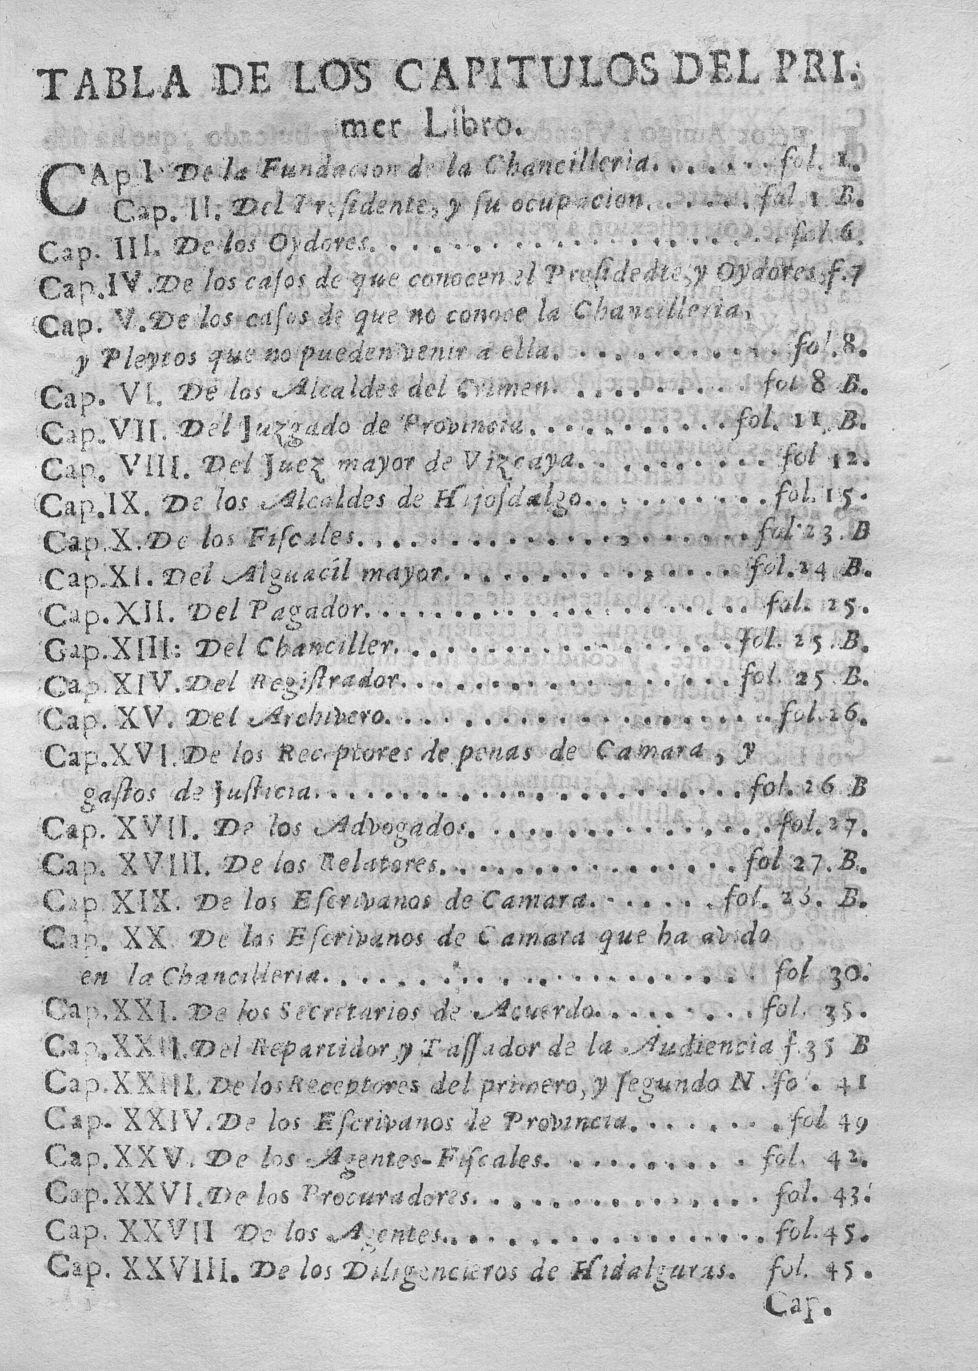 TABLA DE LOS CAPITULOS DEL PRI-
mer Libro.
CAp I De la Fundacion de la Chancilleria. . . . . . . fol. 1.
Cap. II: Del Presidente, y su ocupacion. . . . . . fol 1 B.
Cap. III. De los Oydores. . . . . . . . . . . . . . . . . . . fol 6.
Cap.IV.De los casos de que conocen el Presidedte, y Oydores,f.7
Cap. V.De los casos de que no conoce la Chancilleria,
y Pleytos que no pueden venir a ella. . . . . . . . . . . fol.8.
Cap. VI. De los Alcaldes del Crimen. . . . . . . . . . fol 8 B.
Cap.VII. Del Juzgado de Provincia. . . . . . . . . . fol. 11 B.
Cap. VIII. Del Juez mayor de Vizcaya. . . . . . . . . . fol 12.
Cap.IX. De los Alcaldes de Hijosdalgo. . . . . . . . . fol. 15.
Cap.X.De los Fiscales. . . . . . . . . . . . . . . . . . . fol 23.B
Cap.XI. Del Alguacil mayor. . . . . . . . . . . . . . fol.24 B.
Cap.XII. Del Pagador. . . . . . . . . . . . . . . . . . fol. 25.
Cap.XIII: Del Chanciller. . . . . . . . . . . . . . . fol. 25.B.
Cap.XIV.Del Registrador. . . . . . . . . . . . . . . fol. 25 B.
Cap. XV. Del Archivero. . . . . . . . . . . . . . . . . . fol.26.
Cap.XVI.De los Receptores de penas de Camara, y
gastos de Justicia. . . . . . . . . . . . . . . . . . . . fol.26 B
Cap. XVII. De los Advogados. . . . . . . . . . . . . . fol.27.
Cap. XVIII. De los Relatores. . . . . . . . . . . . . fol 27.B.
Cap XIX. De los Escrivanos de Camara. . . . . . . fol. 28. B.
Cap. XX. De los Escrivanos de Camara que ha avido
en la Chancilleria. . . . . . . . . . . . . . . . . . . . fol 30.
Cap.XXI. De los Secretarios de Acuerdo. . . . . . . . fol. 35.
Cap.XXII.Del Repartidor,y Tassador de la Audiencia f.35 B
Cap.XXIII.De los Receptores del primero,y segundo N. fo . 41
Cap. XXIV.De los Escrivanos de Provincia. . . . . . . . fol 49
Cap.XXV. De los Agentes-Fiscales. . . . . . . . . . fol. 42.
Cap.XXVI.De los Procuradores. . . . . . . . . . . . . . fol. 43.
Cap. XXVII De los Agentes. . . . . . . . . . . . . . . . fol.45.
Cap. XXVIII. De los Diligencieros de Hidalguras. fol. 45.
Cap.